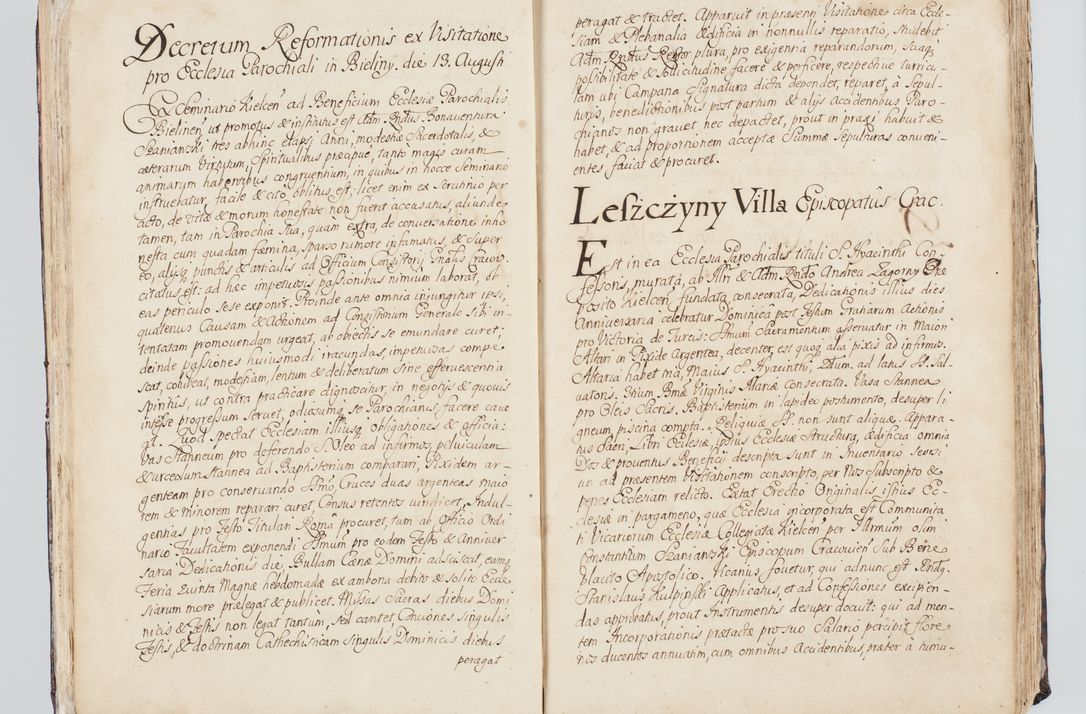 Decretum Reformationis ex Visitatione
pro Ecclesia Parochiali in Bieliny. die 13. Augusti
E Seminario Kielcen ad Beneficium Ecclesiæ Parochialis
Bielinen ut promotus & institutus est Adm. Rndus Bonaventura
Szaniawski tres abhinc etapsi Anni, modestiæ Sacerdotalis, &
cæterarum Virtutum, Spiritualibus præcipue, tanto magis curam
animarum habentibus congruentium, in quibus in hocce Seminario
instruebatur, facile & cito oblitus est; licet enim ex Scrutinio per
acto, de vitæ & morum honestate non fuerit accusatus, aliunde
tamen, tam in Parochia sua, quam extra, de conversatione inho
nesta cum quadam fæmina, sparso rumore infamatus, & super
eo, alijsq punctis & articulis ad Officium Consistorij Gnalis Cracov.
citatus est: ad hæc impetuosis passionibus nimium laborat, ob
eas periculo sese exponit. Proinde ante omnia injungitur ipsi,
quatenus Causam & Actionem ad Consistorium Generale sibi in-
tentatam promovendam urgeat, ab obiectis se emundare curet;
deinde passiones huiusmodi iracundas, impetuosas compe
scat, cohibeat, modestiam, lentum & deliberatum sine effervescentia
spiritus, ut contra practicare dignoscitur, in negotijs & quovis
in esse progressum servet, odiosumq se Parochianis facere cave
at. Quod spectat Ecclesiam illiusq obligationes & officia:
Vas Stanneum pro deferendo S. Oleo ad infirmos, pelviculam
& urceolum Stannea ad Baptisterium comparari, Pixidem ar-
genteam pro conservando Ssmo, Cruces duas argenteas maio
rem & minorem reparari curet, Census retentos vindicet, Indul-
gentias pro Festo Titulari Roma procuret, tum ab Officio Ordi
nario Facultatem exponendi Ssmum pro eodem Festo & Anniver
saria Dedicationis die, Bullam Cænæ Domini adsciscat, eamq
Feria Quinta Magnæ hebdomadæ ex ambona debito & solito Eccle
siarum more prælegat & publicet. Missas Sacras diebus Domi
nicis & Festis non legat tantum, sed cantet Conciones singulis
Festis, & doctrinam Cathechismam singulis Dominicis diebus
peragat
peragat & tractet. Apparuit in præsenti Visitatione circa Eccle-
siam & Plebanalia ædificia in nonnullis reparatio, studebit
Adm. Rndus Rector plura, pro exigentia reparandorum, suaq
possibilitate & sollicitudine facere & perficere, respective turricu-
lam ubi Campana Signatura dicta dependet, reparet, à Sepul-
turis, benedictionibus post partum & alijs Accidentibus Paro-
chianos non gravet, nec depactet, prout in praxi habuit &
habet, & ad proportionem acceptæ Summæ sepulturas conveni-
entes faciat & procuret.
Leszczyny Villa Episcopatûs Crac.
Est in ea Ecclesia Parochialis tituli S. Hyacinthi Con-
fessoris, murata, ab Illri & Adm Rndo Andrea Zagorny Præ
posito Kielcen, fundata, consecrata, Dedicationis illius dies
Anniversaria celebratur Dominica post Festum Gratiarum Actionis
pro Victoria de Turcis: Ssmum Sacramentum asservatur in Maiori
Altari in Pixide Argentea, decenter, est quoq alia pixis ad infirmos.
Altaria habet tria, Maius S. Hyacinthi, 2dum. ad latus S. Sal-
vatoris. 3tium Bmæ Virginis Mariæ Consecrata. Vasa Stannea
pro Oleis Sacris, Baptisterium in lapideo postumento, desuper li
gneum, piscina compta. Reliquiæ SS: non sunt aliquæ. Appara-
tus Sacri, Libri Ecclesiæ, ipsius Ecclesiæ Structura, ædificia omnia
Dos & proventus Beneficij descripta sunt in Inventario seorsi
vo ad præsentem Visitationem conscripto, per Nos subscripto &
penes Ecclesiam relicto. Extat Erectio Originalis istius Ec-
clesiæ in pargameno, quæ Ecclesia incorporata est Communita
ti Vicariorum Ecclesiæ Collegiatæ Kielcen per Illrmum olim
Constantinum Szaniawski Episcopum Cracovien sub Bene
placito Apostolico. Vicarius fovetur, qui adnunc est Rndus
Stanislaus Kulpinski Applicatus, et ad Confessiones excipien-
das approbatus, prout Instrumentis desuper docuit: qui ad men-
tem Incorporationis prætactæ pro suo Salario percipit flore
nos ducentos annuatim, cum omnibus Accidentibus, præter à tumu-